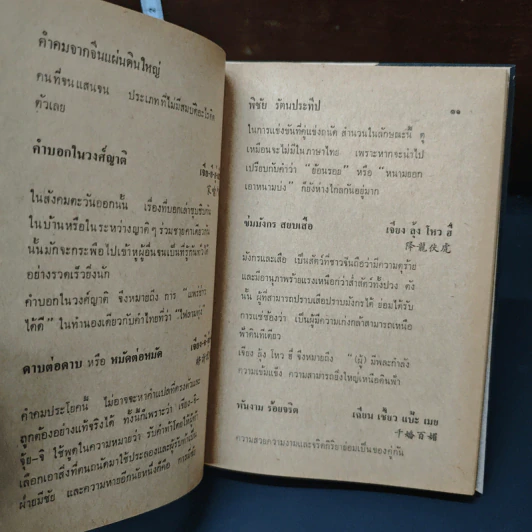 คำคมจากจีนแผ่นดินใหญ่
คนที่จนแสนจน ประเภทที่ไม่มีสมบัติอะไรติด
ตัวเลย
คำบอกในวงศ์ญาติ
ในสังคมตะวันออกนั้น เรื่องที่บอกเล่าซุบซิบกัน
ในบ้านหรือในระหว่างญาติๆ ร่วมชายคาเดียวกัน
นั้นมักจะกระพือไปเข้าหูผู้อื่นจนเป็นที่รู้กันทั่วได้
อย่างรวดเร็วยิ่งนัก
คำบอกในวงศ์ญาติ จึงหมายถึง การ "แพร่ข่าว
ได้ดี" ในทำนองเดียวกับคำไทยที่ว่า "ไฟลามทุ่ง"
ดาบต่อดาบ หรือ หมัดต่อหมัด
คำคมประโยคนี้ ไม่อาจจะหาคำแปลที่ตรงตัวและ
ถูกต้องอย่างแท้จริงได้ ทั้งนี้ก็เพราะว่า เจียง-จี-
จุ้ย-จี ใช้พูดในความหมายว่า รับคำท้าโดยให้ผู้ท้า
เลือกเอาสิ่งที่ตนถนัดมาใช้ประลองและผู้รับคำท้าเป็น
ฝ่ายมีชัย และความหมายอีกนัยหนึ่งก็คือ การที่ฝ่าย
พิชัย รัตนประทีป ๑๑
ในการแข่งขันที่คู่แข่งถนัด สำนวนในลักษณะนี้ ดู
เหมือนจะไม่มีในภาษาไทย เพราะหากจะนำไป
เปรียบกับคำว่า "ย้อนรอย" หรือ "หนามยอก
เอาหนามบ่ง" ก็ยังห่างไกลกันอยู่มาก
ข่มมังกร สยบเสือ เจียง ลุ้ง โหว ฮี่
降龍伏虎
มังกรและเสือ เป็นสัตว์ที่ชาวจีนถือว่ามีความดุร้าย
และมีอานุภาพร้ายแรงเหนือกว่าสำสัตว์ทั้งปวง ดัง
นั้น ผู้ที่สามารถปราบเสือปราบมังกรได้ ย่อมได้รับ
การแซ่ซ้องว่า เป็นผู้มีความเก่งกล้าสามารถเหนือ
ฟ้าดินทีเดียว
เจียง ลุ้ง โหว ฮี่ จึงหมายถึง "(ผู้) มีพละกำลัง
ความเข้มแข็ง ความสามารถยิ่งใหญ่เหนือคนฟ้า
พันงาม ร้อยจริต เฉียน เซี้ยว แป๊ะ เมย
千嬌百媚
ความสวยความงามและจริตกิริยาย่อมเป็นของคู่กัน